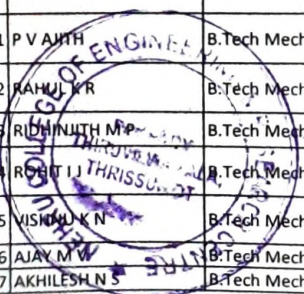 1 P V AJITH B.Tech Mech
2 RAHUL K R B.Tech Mech
3 RIDHINJITH M P B.Tech Mech
4 ROHIT I J B.Tech Mech
5 VISHNU K N B.Tech Mech
6 AJAY M V B.Tech Mech
7 AKHILESH N S B.Tech Mech
NEHRU COLLEGE OF ENGINEERING RESEARCH CENTRE
THRISSUR DT